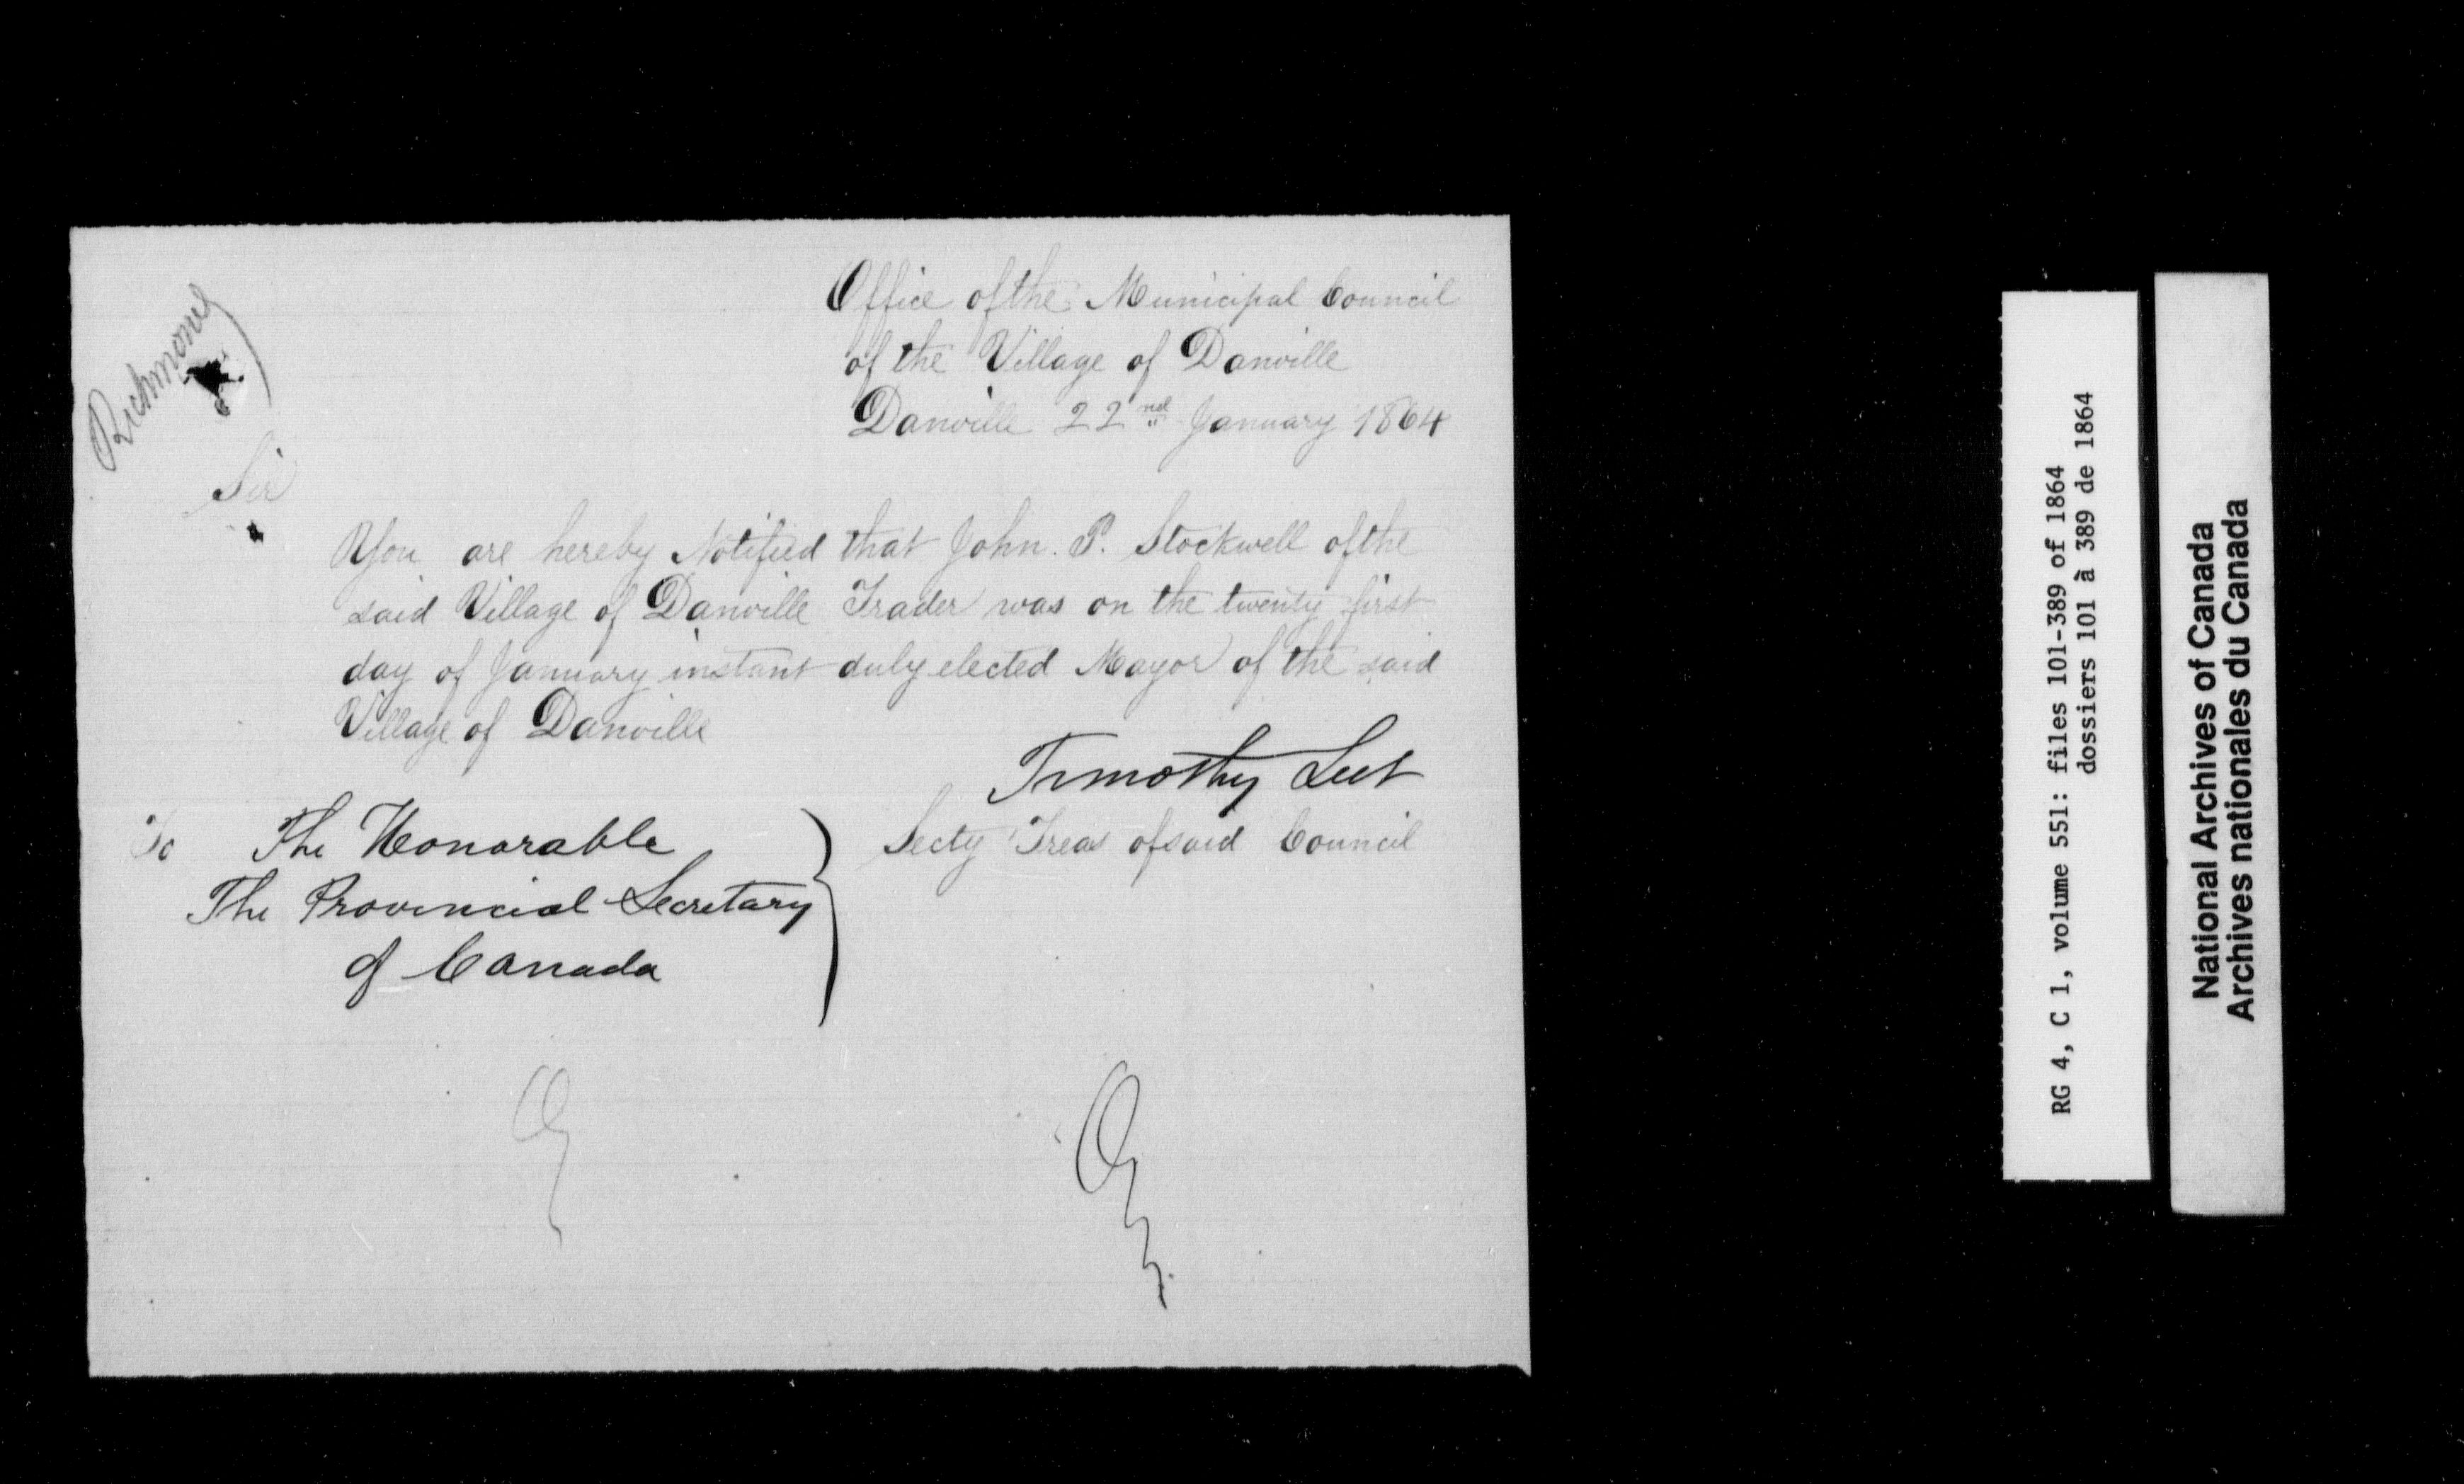 Richmond
Office of the Municipal Council
of the Village of Danville
Danville 22nd January 1864
Sir
You are hereby Notified that John. P. Stockwell of the
said Village of Danville Trader was on the twenty first
day of January instant duly elected Mayor of the said
Village of Danville
Timothy Leet
Secty Treas of said Council
To The Honorable
The Provincial Secretary
of Canada
RG 4, C 1, volume 551: files 101-389 of 1864
dossiers 101 à 389 de 1864
National Archives of Canada
Archives nationales du Canada